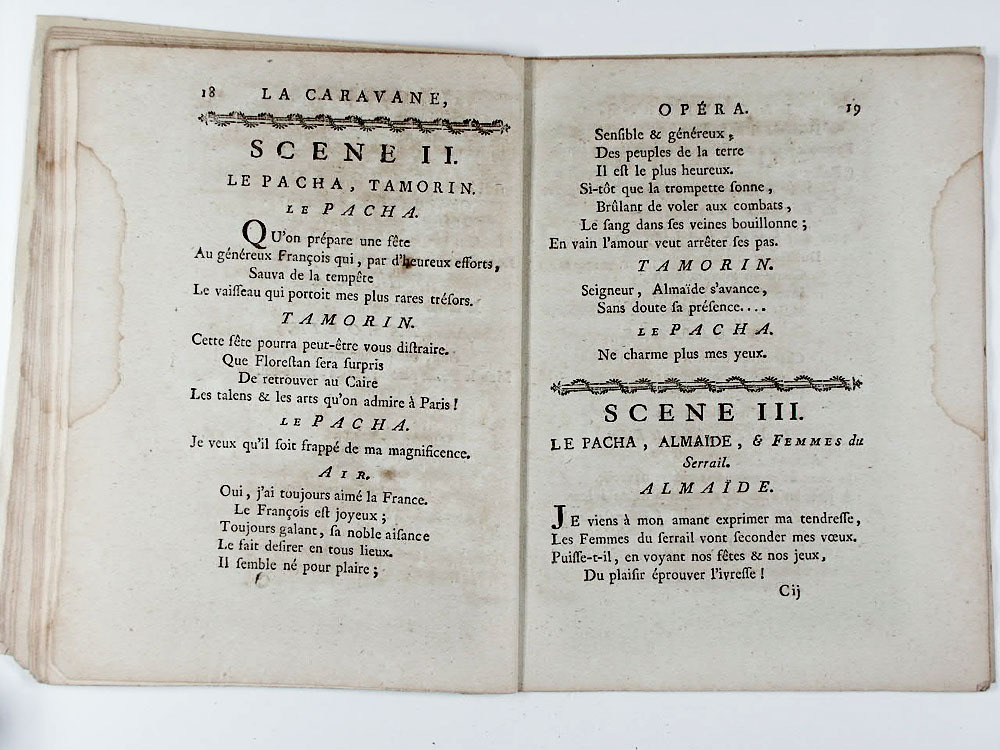 18 LA CARAVANE,
SCENE II.
LE PACHA, TAMORIN.
LE PACHA.
QU'on prépare une fête
Au généreux François qui, par d'heureux efforts,
Sauva de la tempête
Le vaiſſeau qui portoit mes plus rares tréſors.
TAMORIN.
Cette fête pourra peut-être vous diſtraire.
Que Floreſtan ſera ſurpris
De retrouver au Caire
Les talens & les arts qu'on admire à Paris !
LE PACHA.
Je veux qu'il ſoit frappé de ma magnificence.
AIR.
Oui, j'ai toujours aimé la France.
Le François eſt joyeux ;
Toujours galant, ſa noble aiſance
Le fait deſirer en tous lieux.
Il ſemble né pour plaire ;
OPÉRA. 19
Senſible & généreux,
Des peuples de la terre
Il eſt le plus heureux.
Si-tôt que la trompette ſonne,
Brûlant de voler aux combats,
Le ſang dans ſes veines bouillonne ;
En vain l'amour veut arrêter ſes pas.
TAMORIN.
Seigneur, Almaïde s'avance,
Sans doute ſa préſence....
LE PACHA.
Ne charme plus mes yeux.
SCENE III.
LE PACHA, ALMAÏDE, & FEMMES du
Serrail.
ALMAÏDE.
JE viens à mon amant exprimer ma tendreſſe,
Les Femmes du ſerrail vont ſeconder mes vœux.
Puiſſe-t-il, en voyant nos fêtes & nos jeux,
Du plaiſir éprouver l'ivreſſe !
Cij